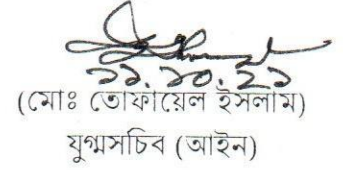 ১১.১০.২১
(মোঃ তোফায়েল ইসলাম)
যুগ্মসচিব (আইন)